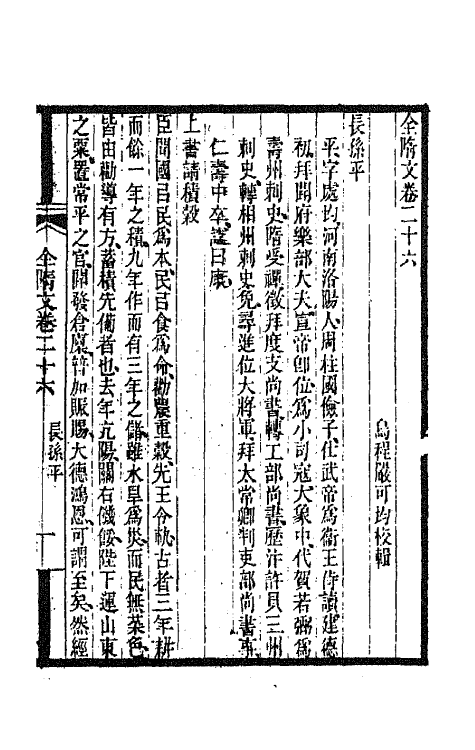 全隋文卷二十六
烏程嚴可均校輯
長孫平
平字處均河南洛陽人周柱國儉子仕武帝爲衛王侍讀建德
初拜開府樂部大夫宣帝卽位爲小司寇大象中代賀若弼爲
壽州刺史隋受禪徵拜度支尚書轉工部尚書歷汴許貝三州
刺史轉相州刺史免尋進位大將軍拜太常卿判吏部尚書事
仁壽中卒諡曰康
上書請積穀
臣聞國㠯民爲本民㠯食爲命勸農重穀先王令軌古者三年耕
而餘一年之積九年作而有三年之儲雖水旱爲災而民無菜色
皆由勸導有方蓄積先備者也去年亢陽關右饑餒陛下運山東
之粟置常平之官開發倉廩普加賑賜大德鴻恩可謂至矣然經
全隋文卷二十六
長孫平
一